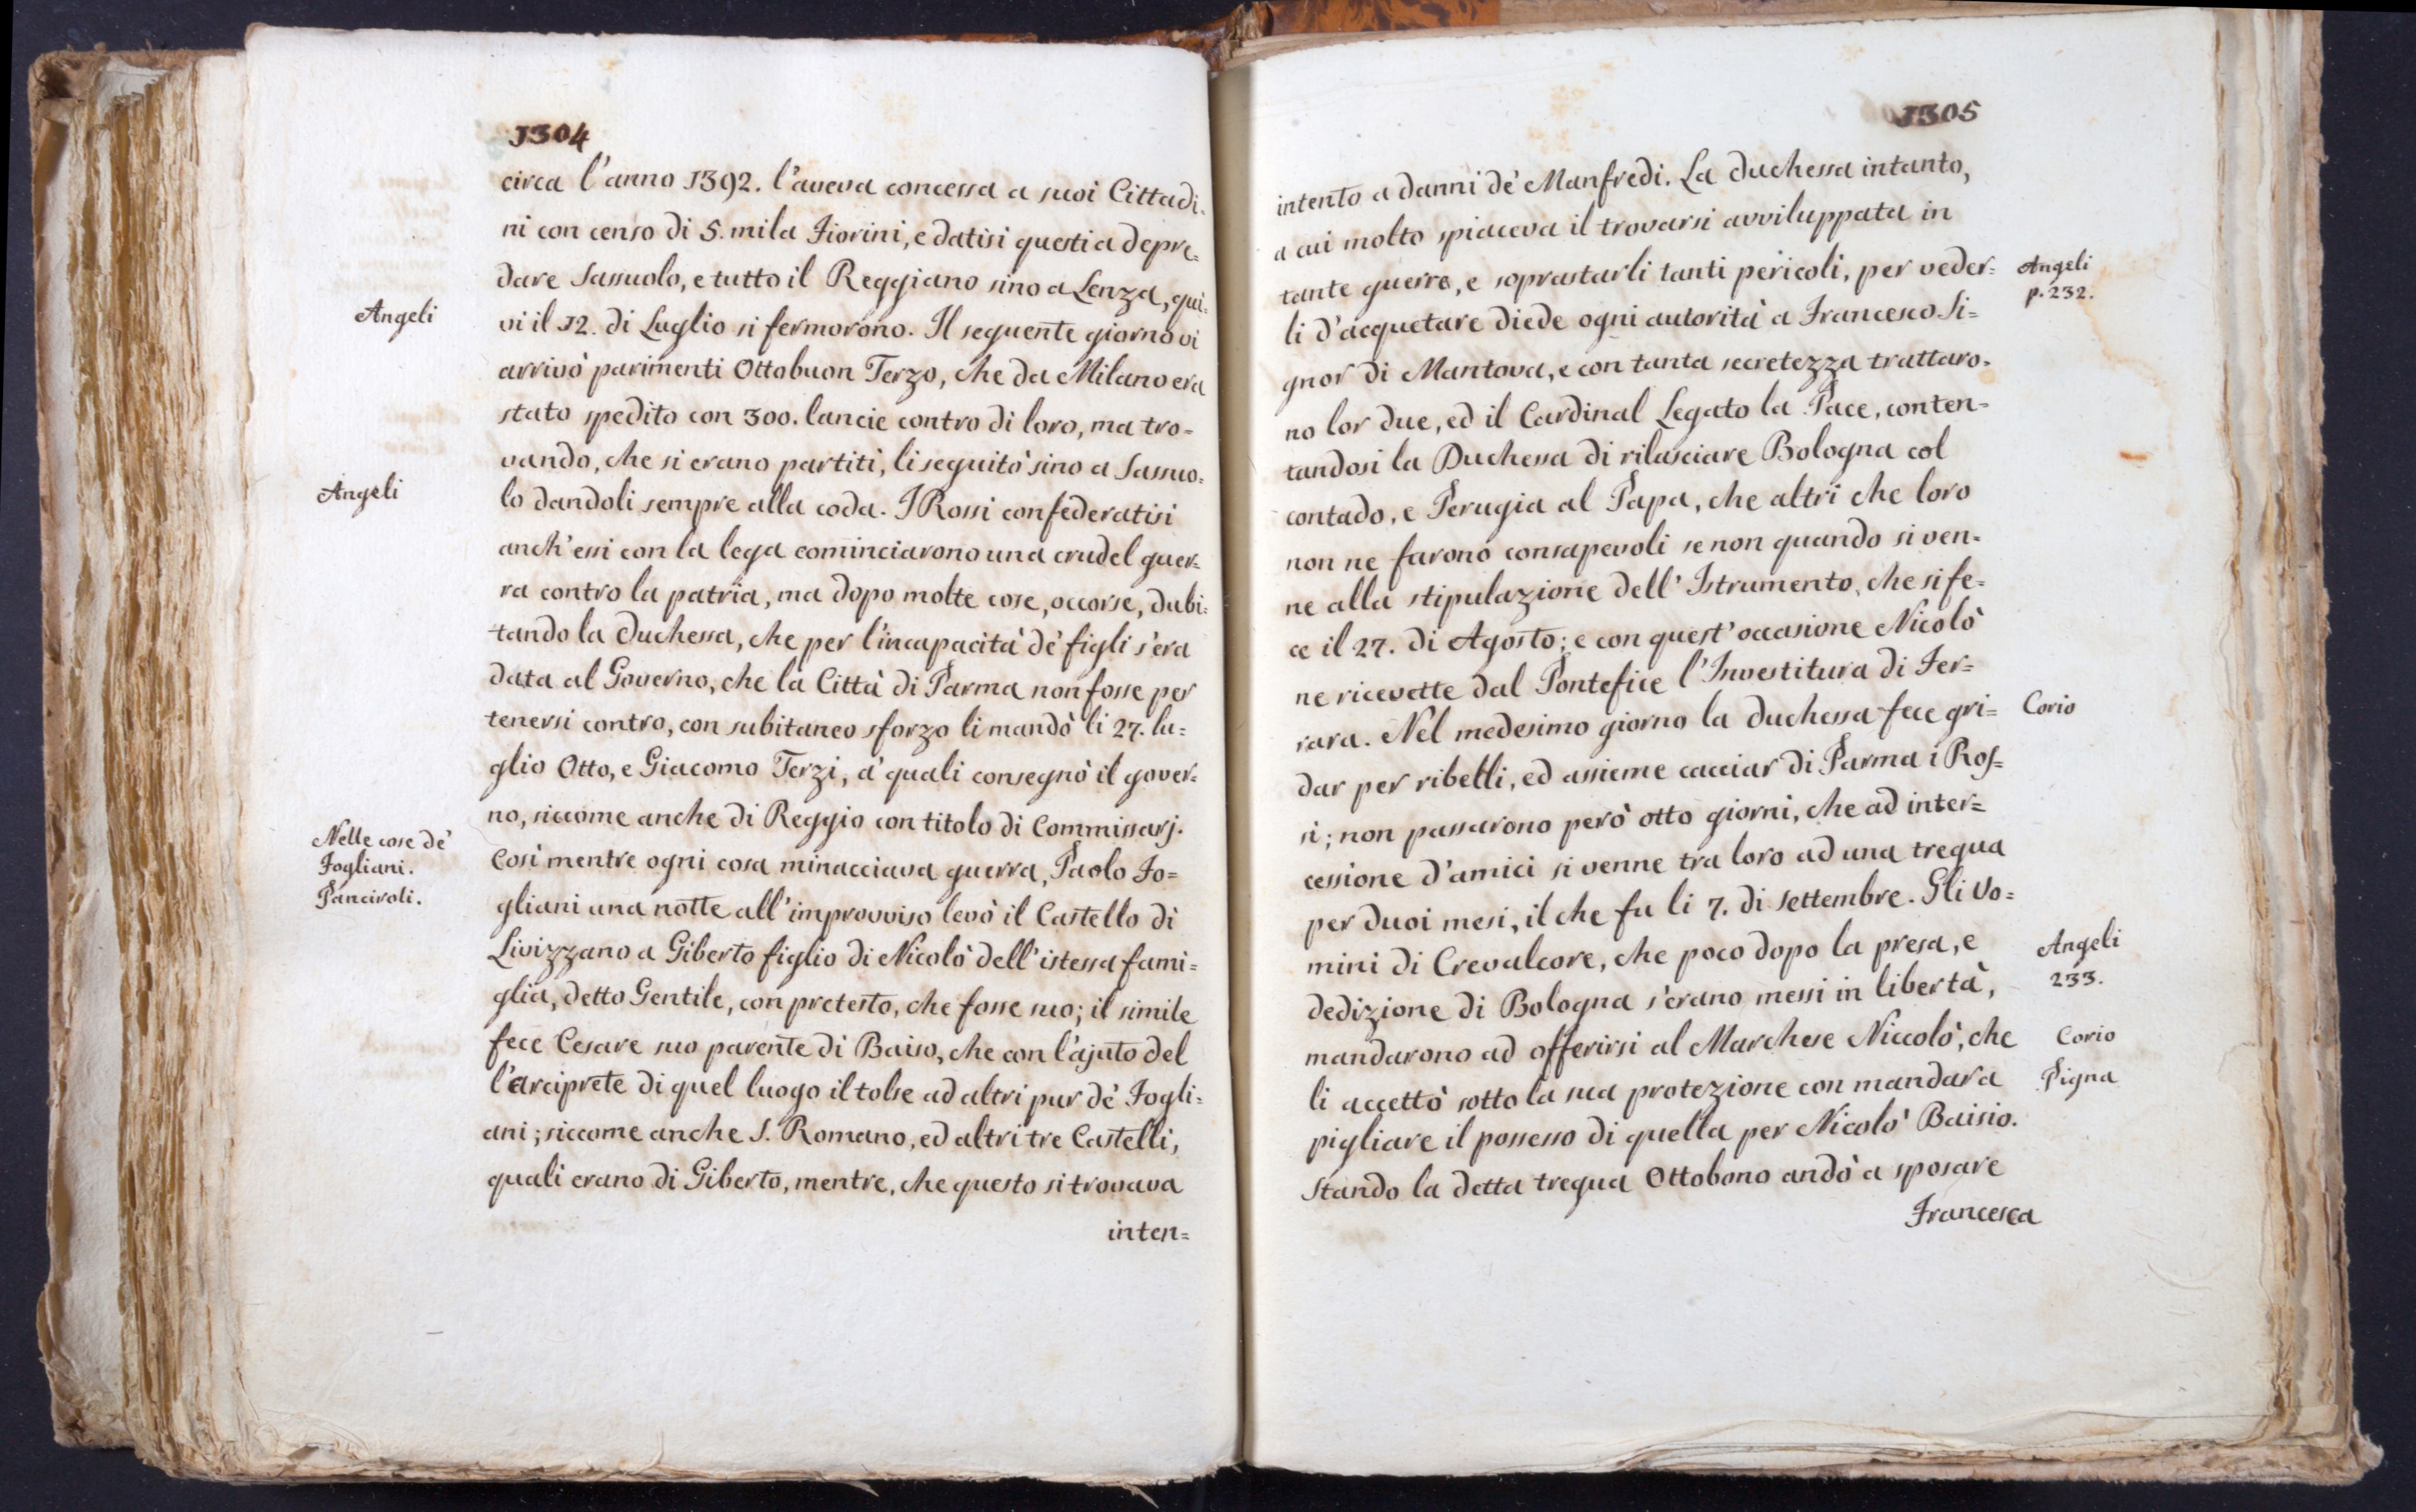 1304
circa l'anno 1392. l'aveva concessa a suoi Cittadi-
ni con censo di 5. mila Fiorini, e datisi questi a depre=
dare Sassuolo, e tutto il Reggiano sino a Lenza, qui-
Angeli
vi il 12. di Luglio si fermorono. Il seguente giorno vi
arrivò parimenti Ottobuon Terzo, che da Milano era
stato spedito con 300. lancie contro di loro, ma tro=
vando, che si erano partiti, li seguitò sino a Sassuo=
Angeli
lo dandoli sempre alla coda. I Rossi confederatisi
anch'essi con la lega cominciarono una crudel guer=
ra contro la patria, ma dopo molte cose, occorse, dubi=
tando la Duchessa, che per l'incapacità de' figli s'era
data al Governo, che la Città di Parma non fosse per
tenersi contro, con subitaneo sforzo li mandò li 27. lu=
glio Otto, e Giacomo Terzi, a' quali consegnò il gover=
no, siccome anche di Reggio con titolo di Commissarj.
Nelle cose de'
Fogliani.
Panciroli.
Così mentre ogni cosa minacciava guerra, Paolo Fo=
gliani una notte all'improvviso levò il Castello di
Livizzano a Giberto figlio di Nicolò dell'istessa fami=
glia, detto Gentile, con pretesto, che fosse suo; il simile
fece Cesare suo parente di Baiso, che con l'ajuto del
l'arciprete di quel luogo il tolse ad altri pur de' Fogli=
ani; siccome anche S. Romano, ed altri tre Castelli,
quali erano di Giberto, mentre, che questo si trovava
inten=
1305
intento a danni de' Manfredi. La Duchessa intanto,
a cui molto spiaceva il trovarsi avviluppata in
tante guerre, e soprastarli tanti pericoli, per veder=
Angeli
p. 232.
li d'acquetare diede ogni autorità a Francesco Si=
gnor di Mantova, e con tanta secretezza trattaro-
no lor due, ed il Cardinal Legato la Pace, conten=
tandosi la Duchessa di rilasciare Bologna col
contado, e Perugia al Papa, che altri che loro
non ne farono consapevoli se non quando si ven-
ne alla stipulazione dell'Istrumento, che si fe=
ce il 27. di Agosto; e con quest'occasione Nicolò
ne ricevette dal Pontefice l'Investitura di Fer=
rara. Nel medesimo giorno la Duchessa fece gri=
Corio
dar per ribelli, ed assieme cacciar di Parma i Ros=
si; non passarono però otto giorni, che ad inter=
cessione d'amici si venne tra loro ad una tregua
per duoi mesi, il che fu li 7. di Settembre. Gli Uo=
mini di Crevalcore, che poco dopo la presa, e
Angeli
233.
dedizione di Bologna s'erano messi in libertà,
mandarono ad offerirsi al Marchese Niccolò, che
Corio
li accettò sotto la sua protezione con mandara
Pigna
pigliare il possesso di quella per Nicolò Baisio.
Stando la detta tregua Ottobono andò a sposare
Francesca